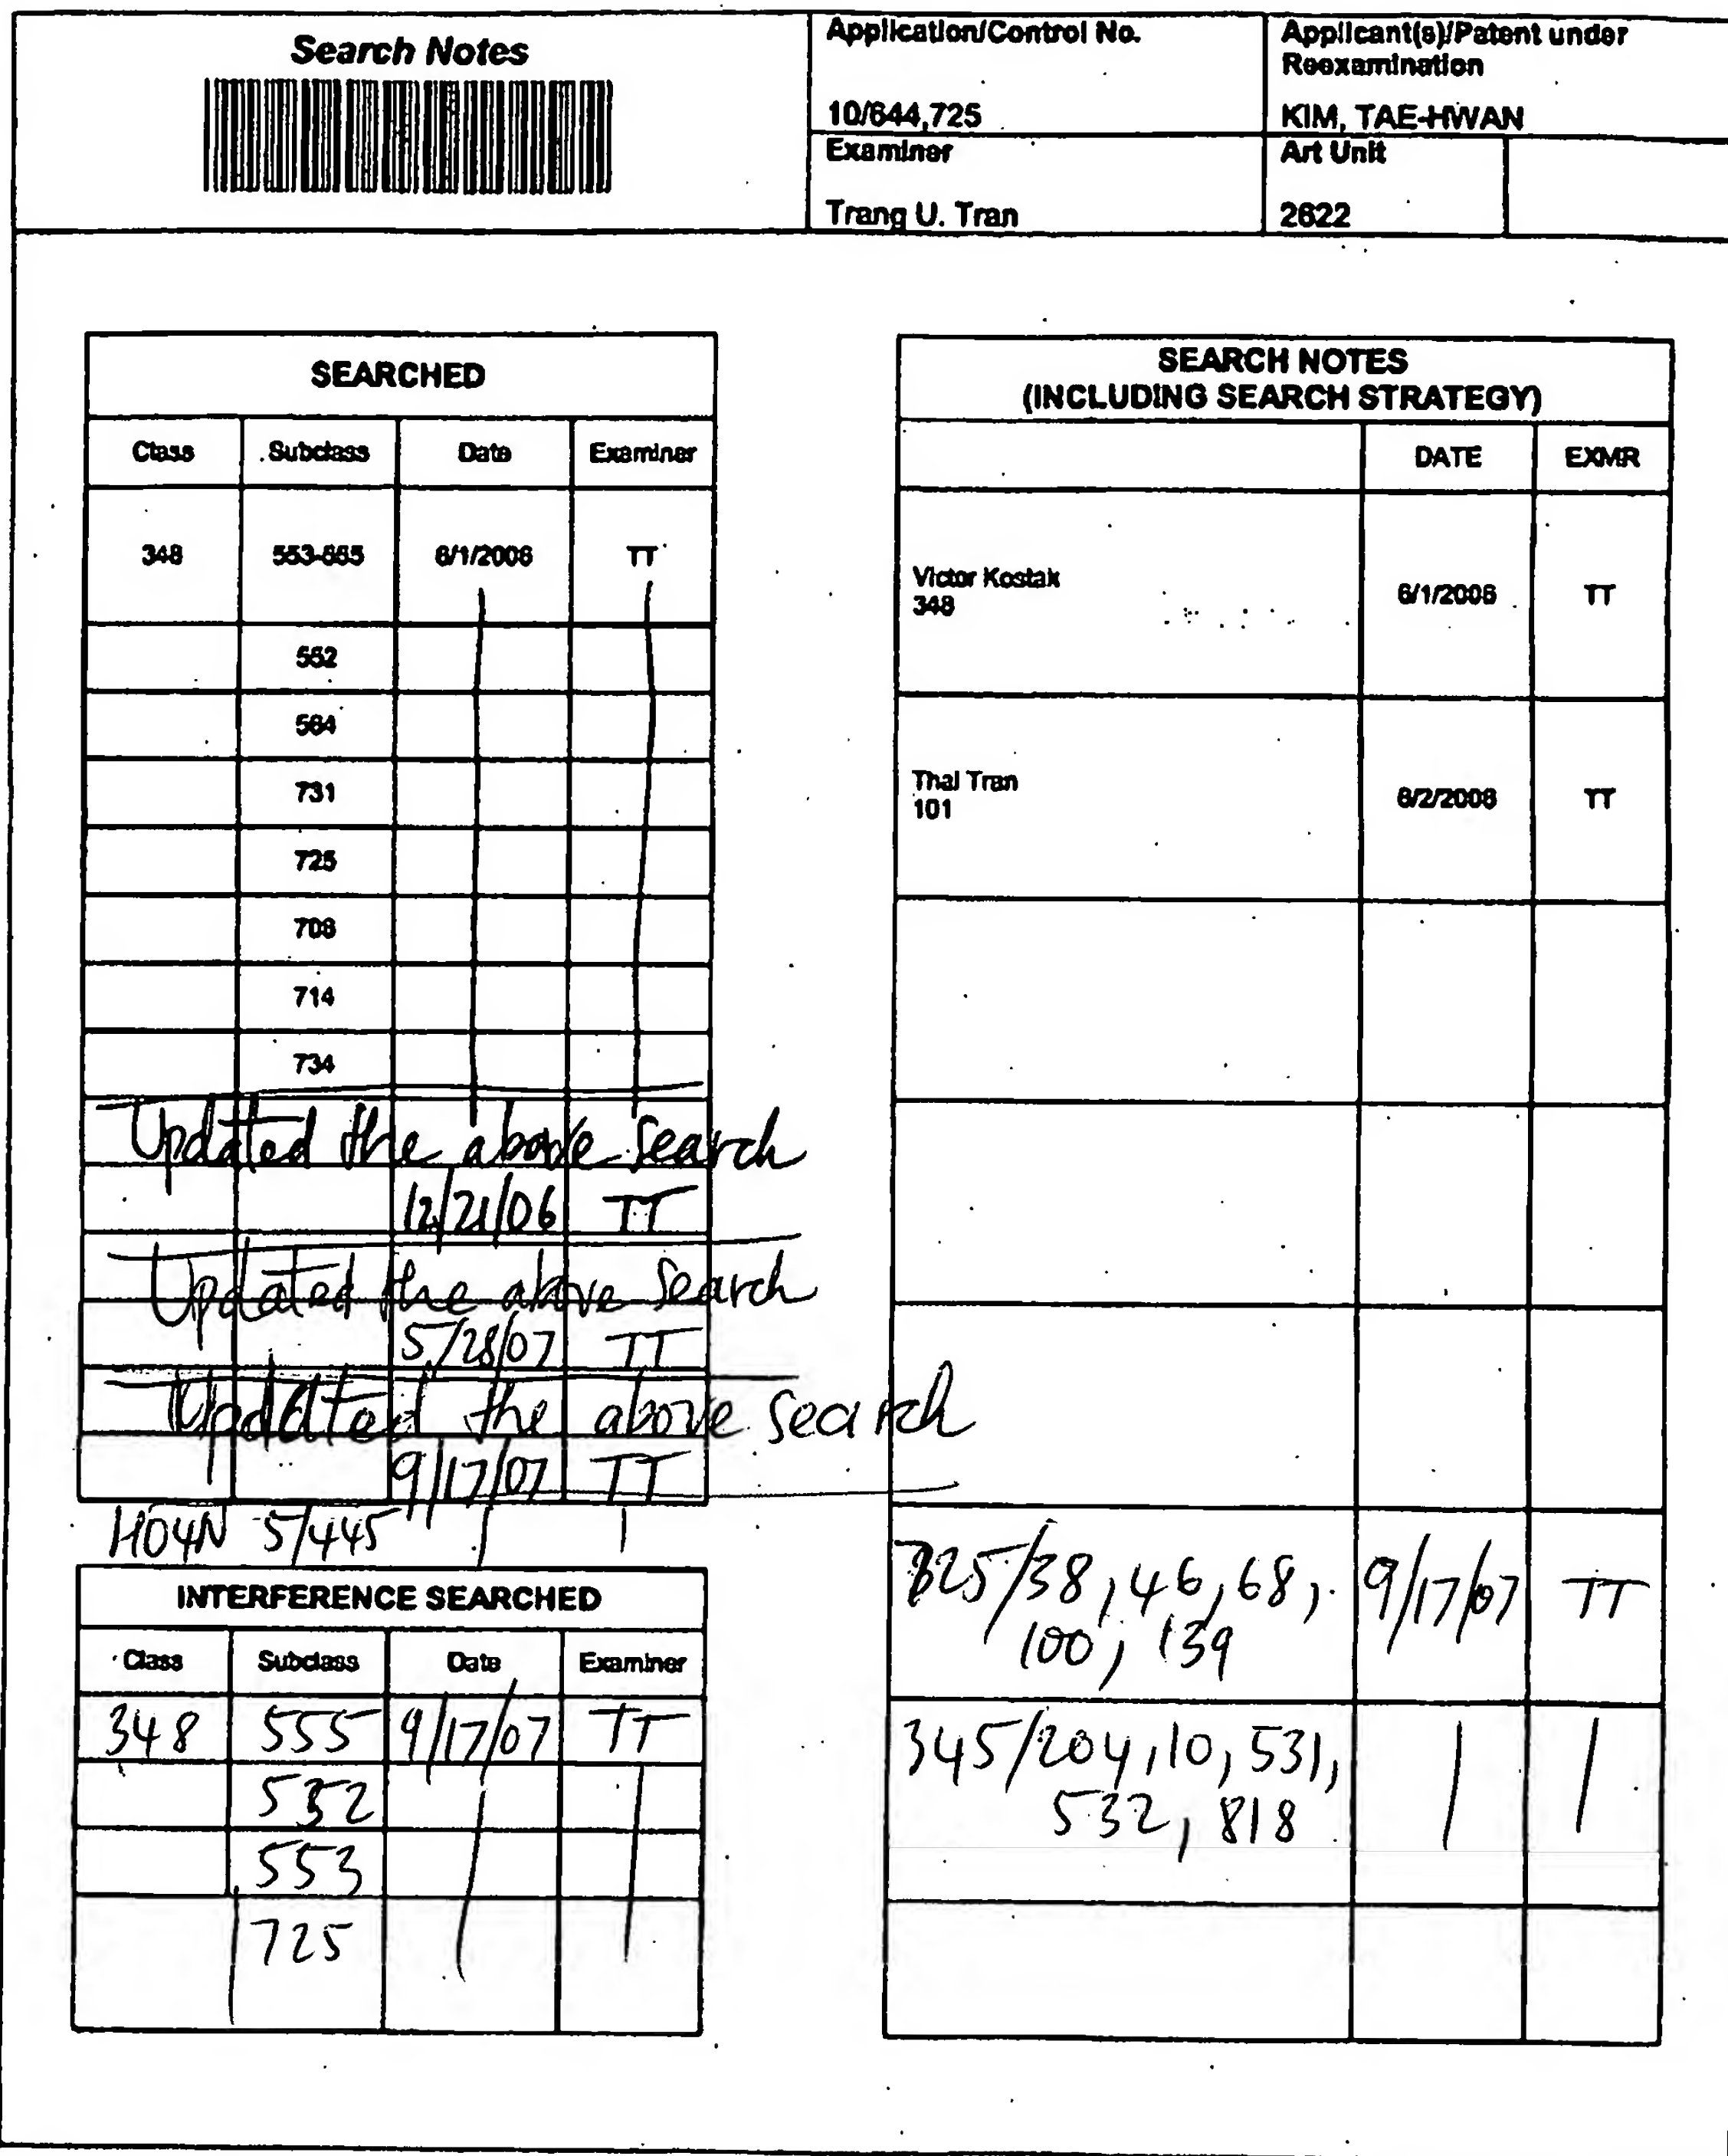 Search Notes
Application/Control No.
10/644,725
Applicant(s)/Patent under
Reexamination
KIM, TAE-HWAN
Examiner
Trang U. Tran
Art Unit
2622
SEARCHED
Class Subclass Date Examiner
348 553-565 6/1/2006 TT
552
564
731
725
708
714
734
Updated the above search
12/21/06 TT
Updated the above search
5/28/07 TT
Updated the above search
9/17/07 TT
H04N 5/445
INTERFERENCE SEARCHED
Class Subclass Date Examiner
348 555 9/17/07 TT
532
553
725
SEARCH NOTES
(INCLUDING SEARCH STRATEGY)
DATE EXMR
Victor Kostak
348 6/1/2006 TT
Thai Tran
101 6/2/2006 TT
/38, 46, 68, 9/17/07 TT
100, 139
345/204, 10, 531,
532, 818